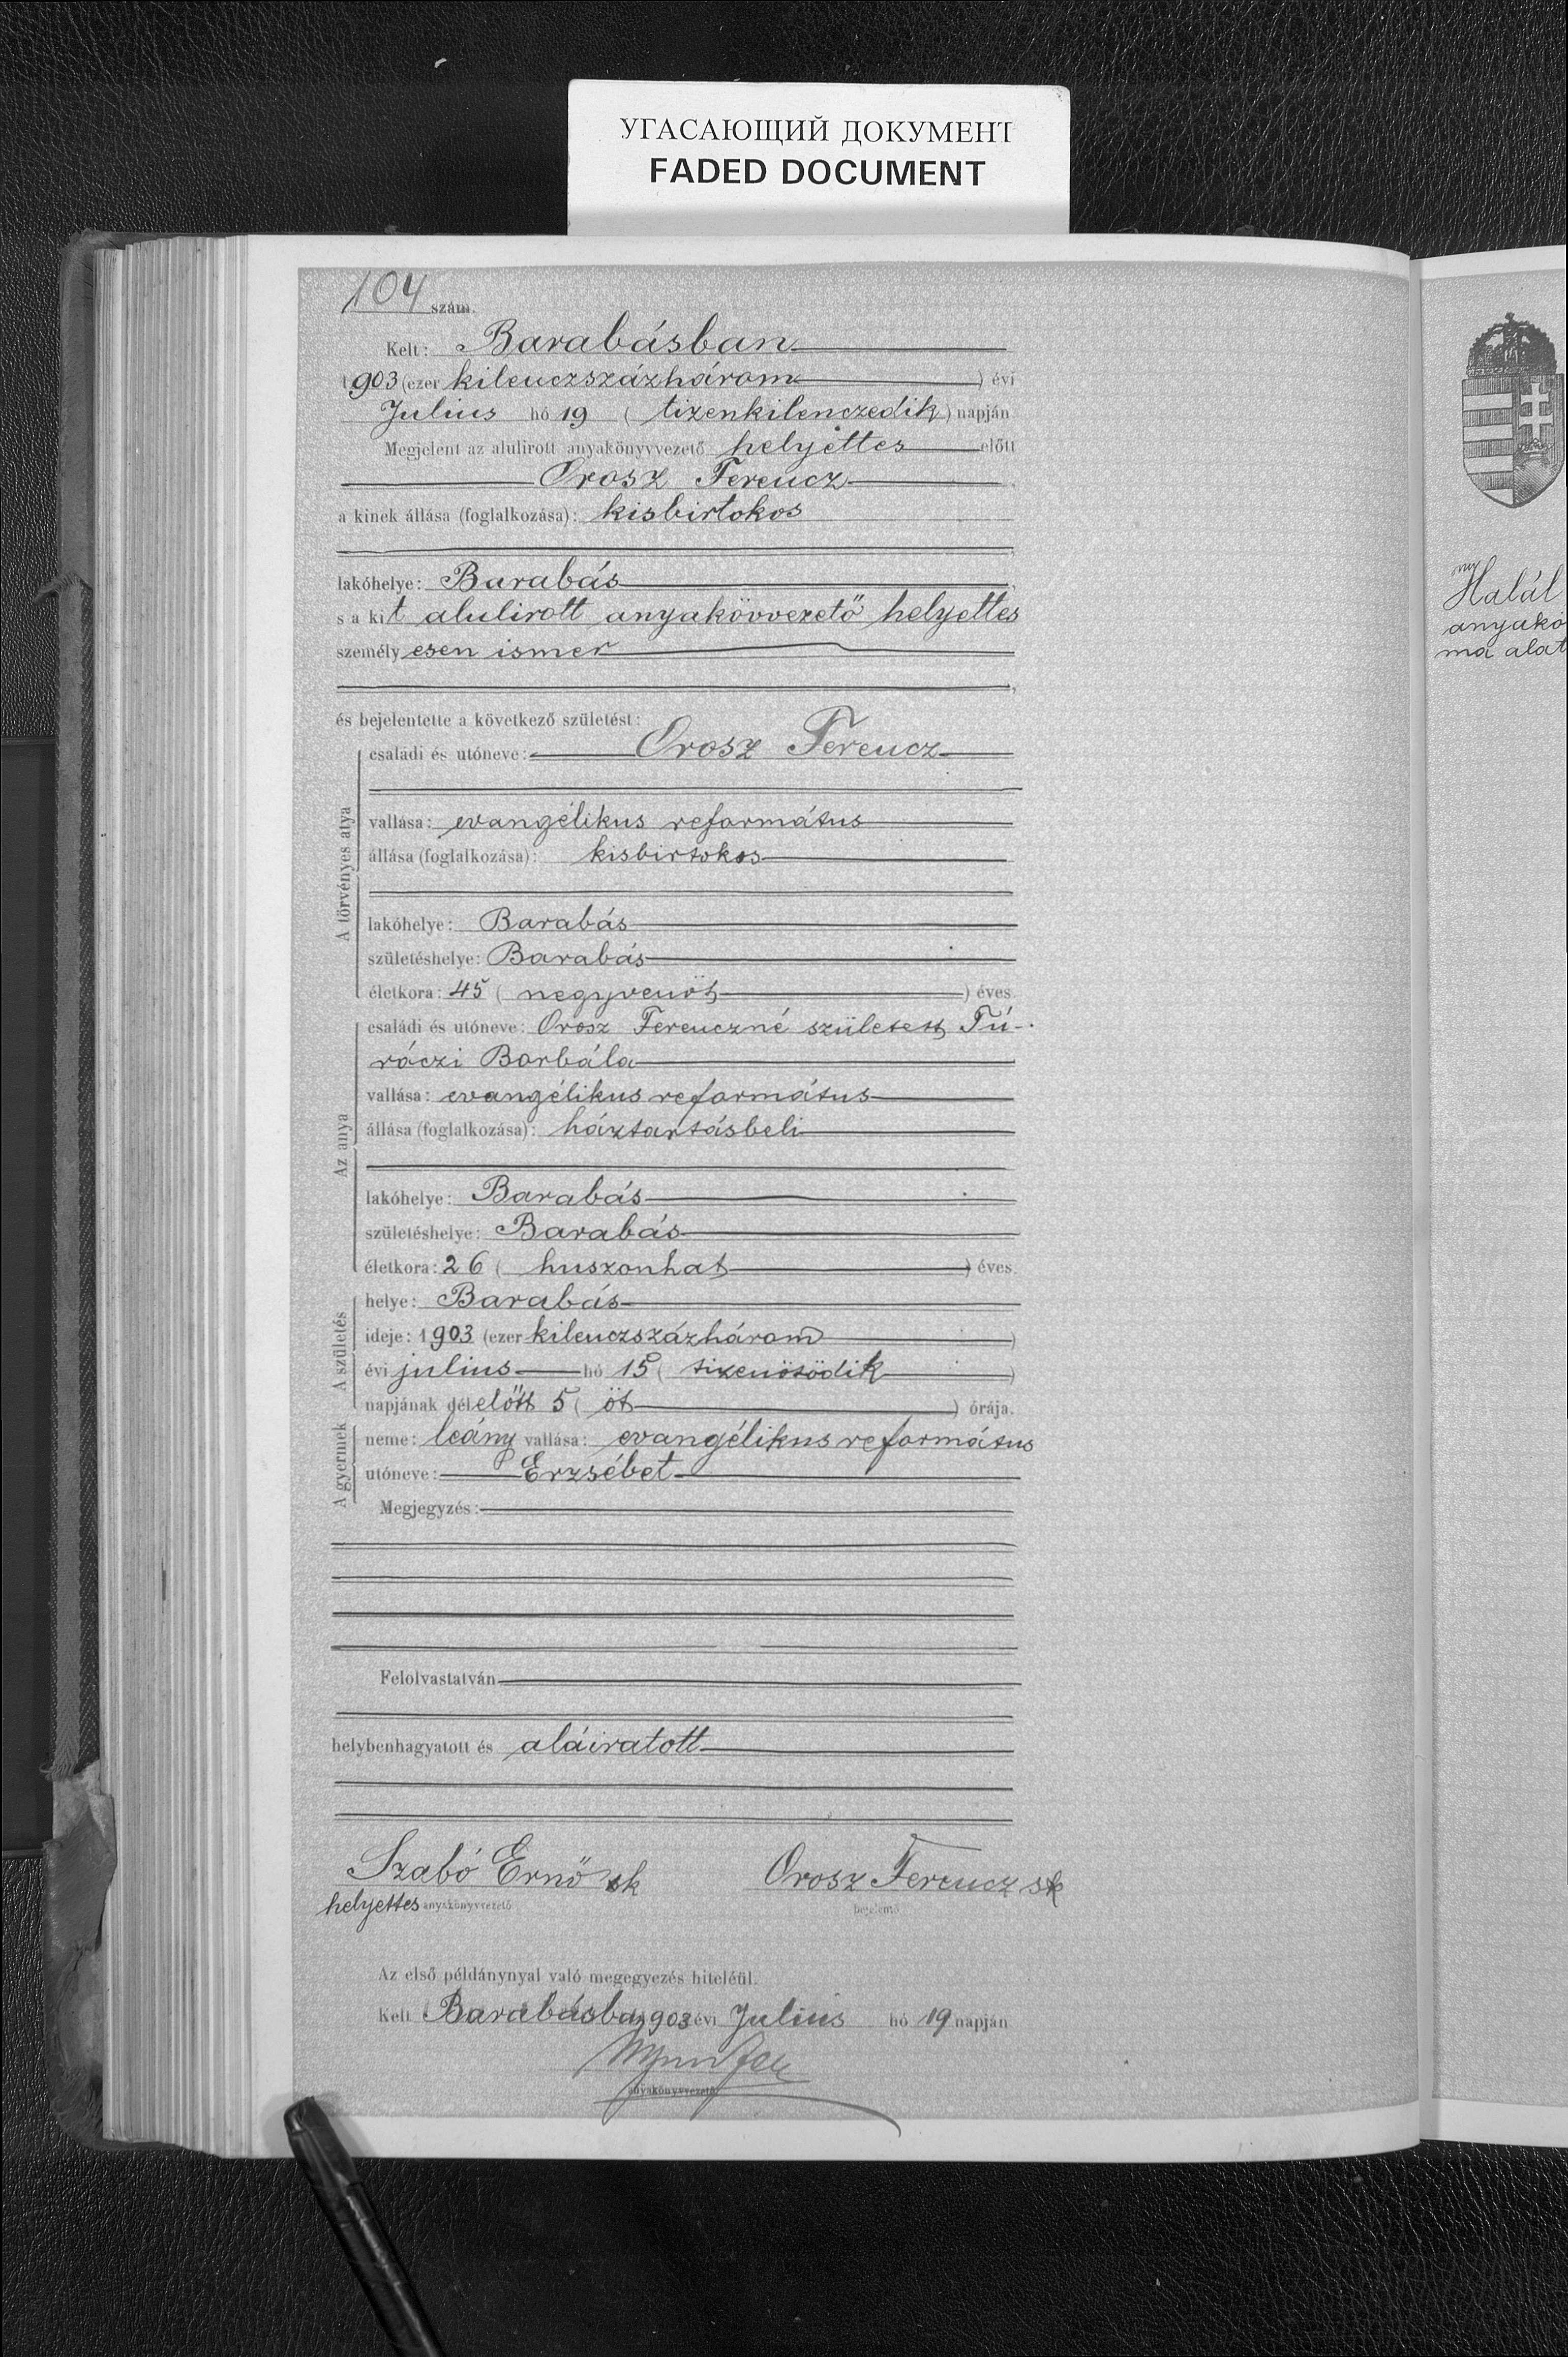 УГАСАЮЩИЙ ДОКУМЕНТ
FADED DOCUMENT
104 szám.
Kelt: Barabásban
1903 (ezer kilenczszázhárom) évi
Julius hó 19 (tizenkilenczedik) napján
Megjelent az alulirott anyakönyvvezető helyettes előtt
Orosz Ferencz
a kinek állása (foglalkozása): kisbirtokos
lakóhelye: Barabás
s a kit alulirott anyakövvezető helyettes
személyesen ismer
és bejelentette a következő születést:
A törvényes atya
családi és utóneve: Orosz Ferencz
vallása: evangélikus református
állása (foglalkozása): kisbirtokos
lakóhelye: Barabás
születéshelye: Barabás
életkora: 45 (negyvenöt) éves
Az anya
családi és utóneve: Orosz Ferenczné született Tú-
ráczi Borbála
vallása: evangélikus református
állása (foglalkozása): háztartásbeli
lakóhelye: Barabás
születéshelye: Barabás
életkora: 26 (huszonhat) éves.
A születés
helye: Barabás
ideje: 1903 (ezer kilenczszázhárom)
évi julius hó 15 (tizenötödik)
napjának délelőtt 5 (öt) órája.
A gyermek
neme: leány vallása: evangélikus református
utóneve: Erzsébet
Megjegyzés:
Felolvastatván
helybenhagyatott és aláiratott
Szabó Ernő sk Orosz Ferencz sk
helyettes anyakönyvvezető bejelentő
Az első példánynyal való megegyezés hiteléül.
Kelt Barabásban 903 évi Julius hó 19 napján
anyakönyvvezető
Halál
anyakö
ma alat